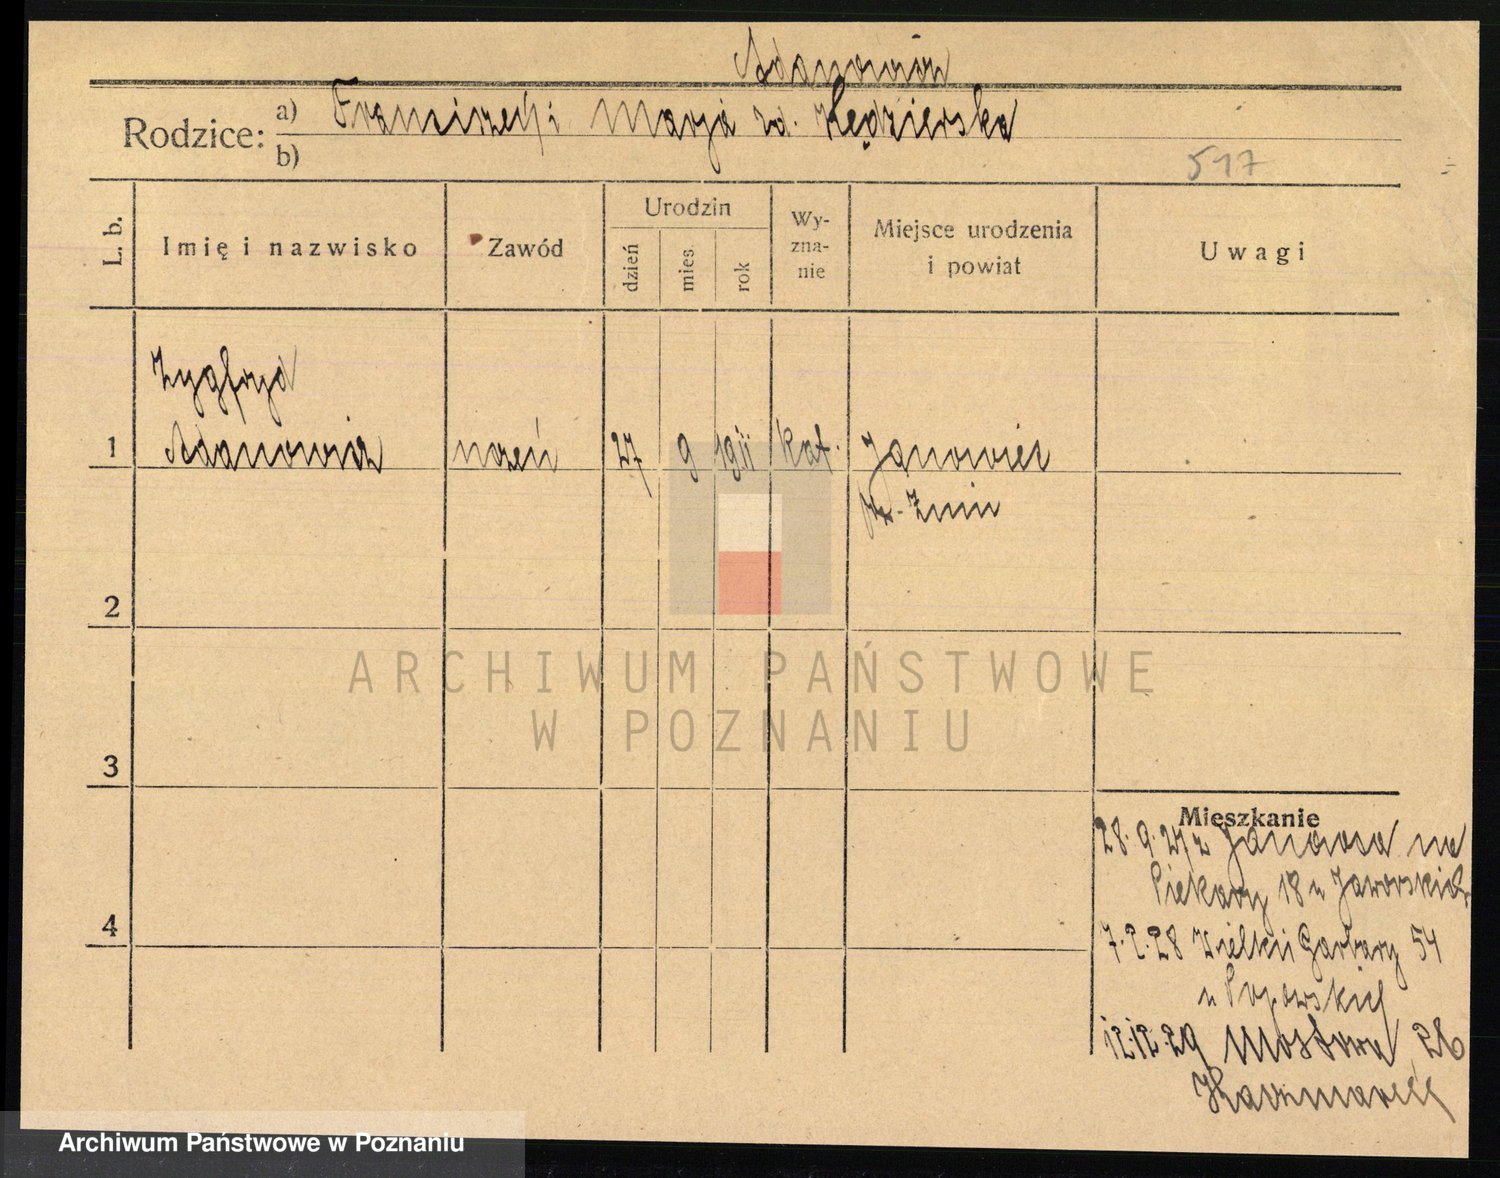 Adamowicz
Rodzice: a) Franciszek i Marja zd. Kędzierska
b)
517
L. b.
Imię i nazwisko
Zawód
Urodzin
dzień
mies.
rok
Wy-
zna-
nie
Miejsce urodzenia
i powiat
Uwagi
Zygfryd
1 Adamowicz uczeń 27 9 1911 kat. Janowiec
pw. Żnin
2
3
4
Mieszkanie
28.9.27 z Janowca na
Piekary 18 u Jaworskich
7.2.28 Wielkie Garbary 54
u
12.12.29 Mostowa
Kaczmarek
ARCHIWUM PAŃSTWOWE
W POZNANIU
Archiwum Państwowe w Poznaniu